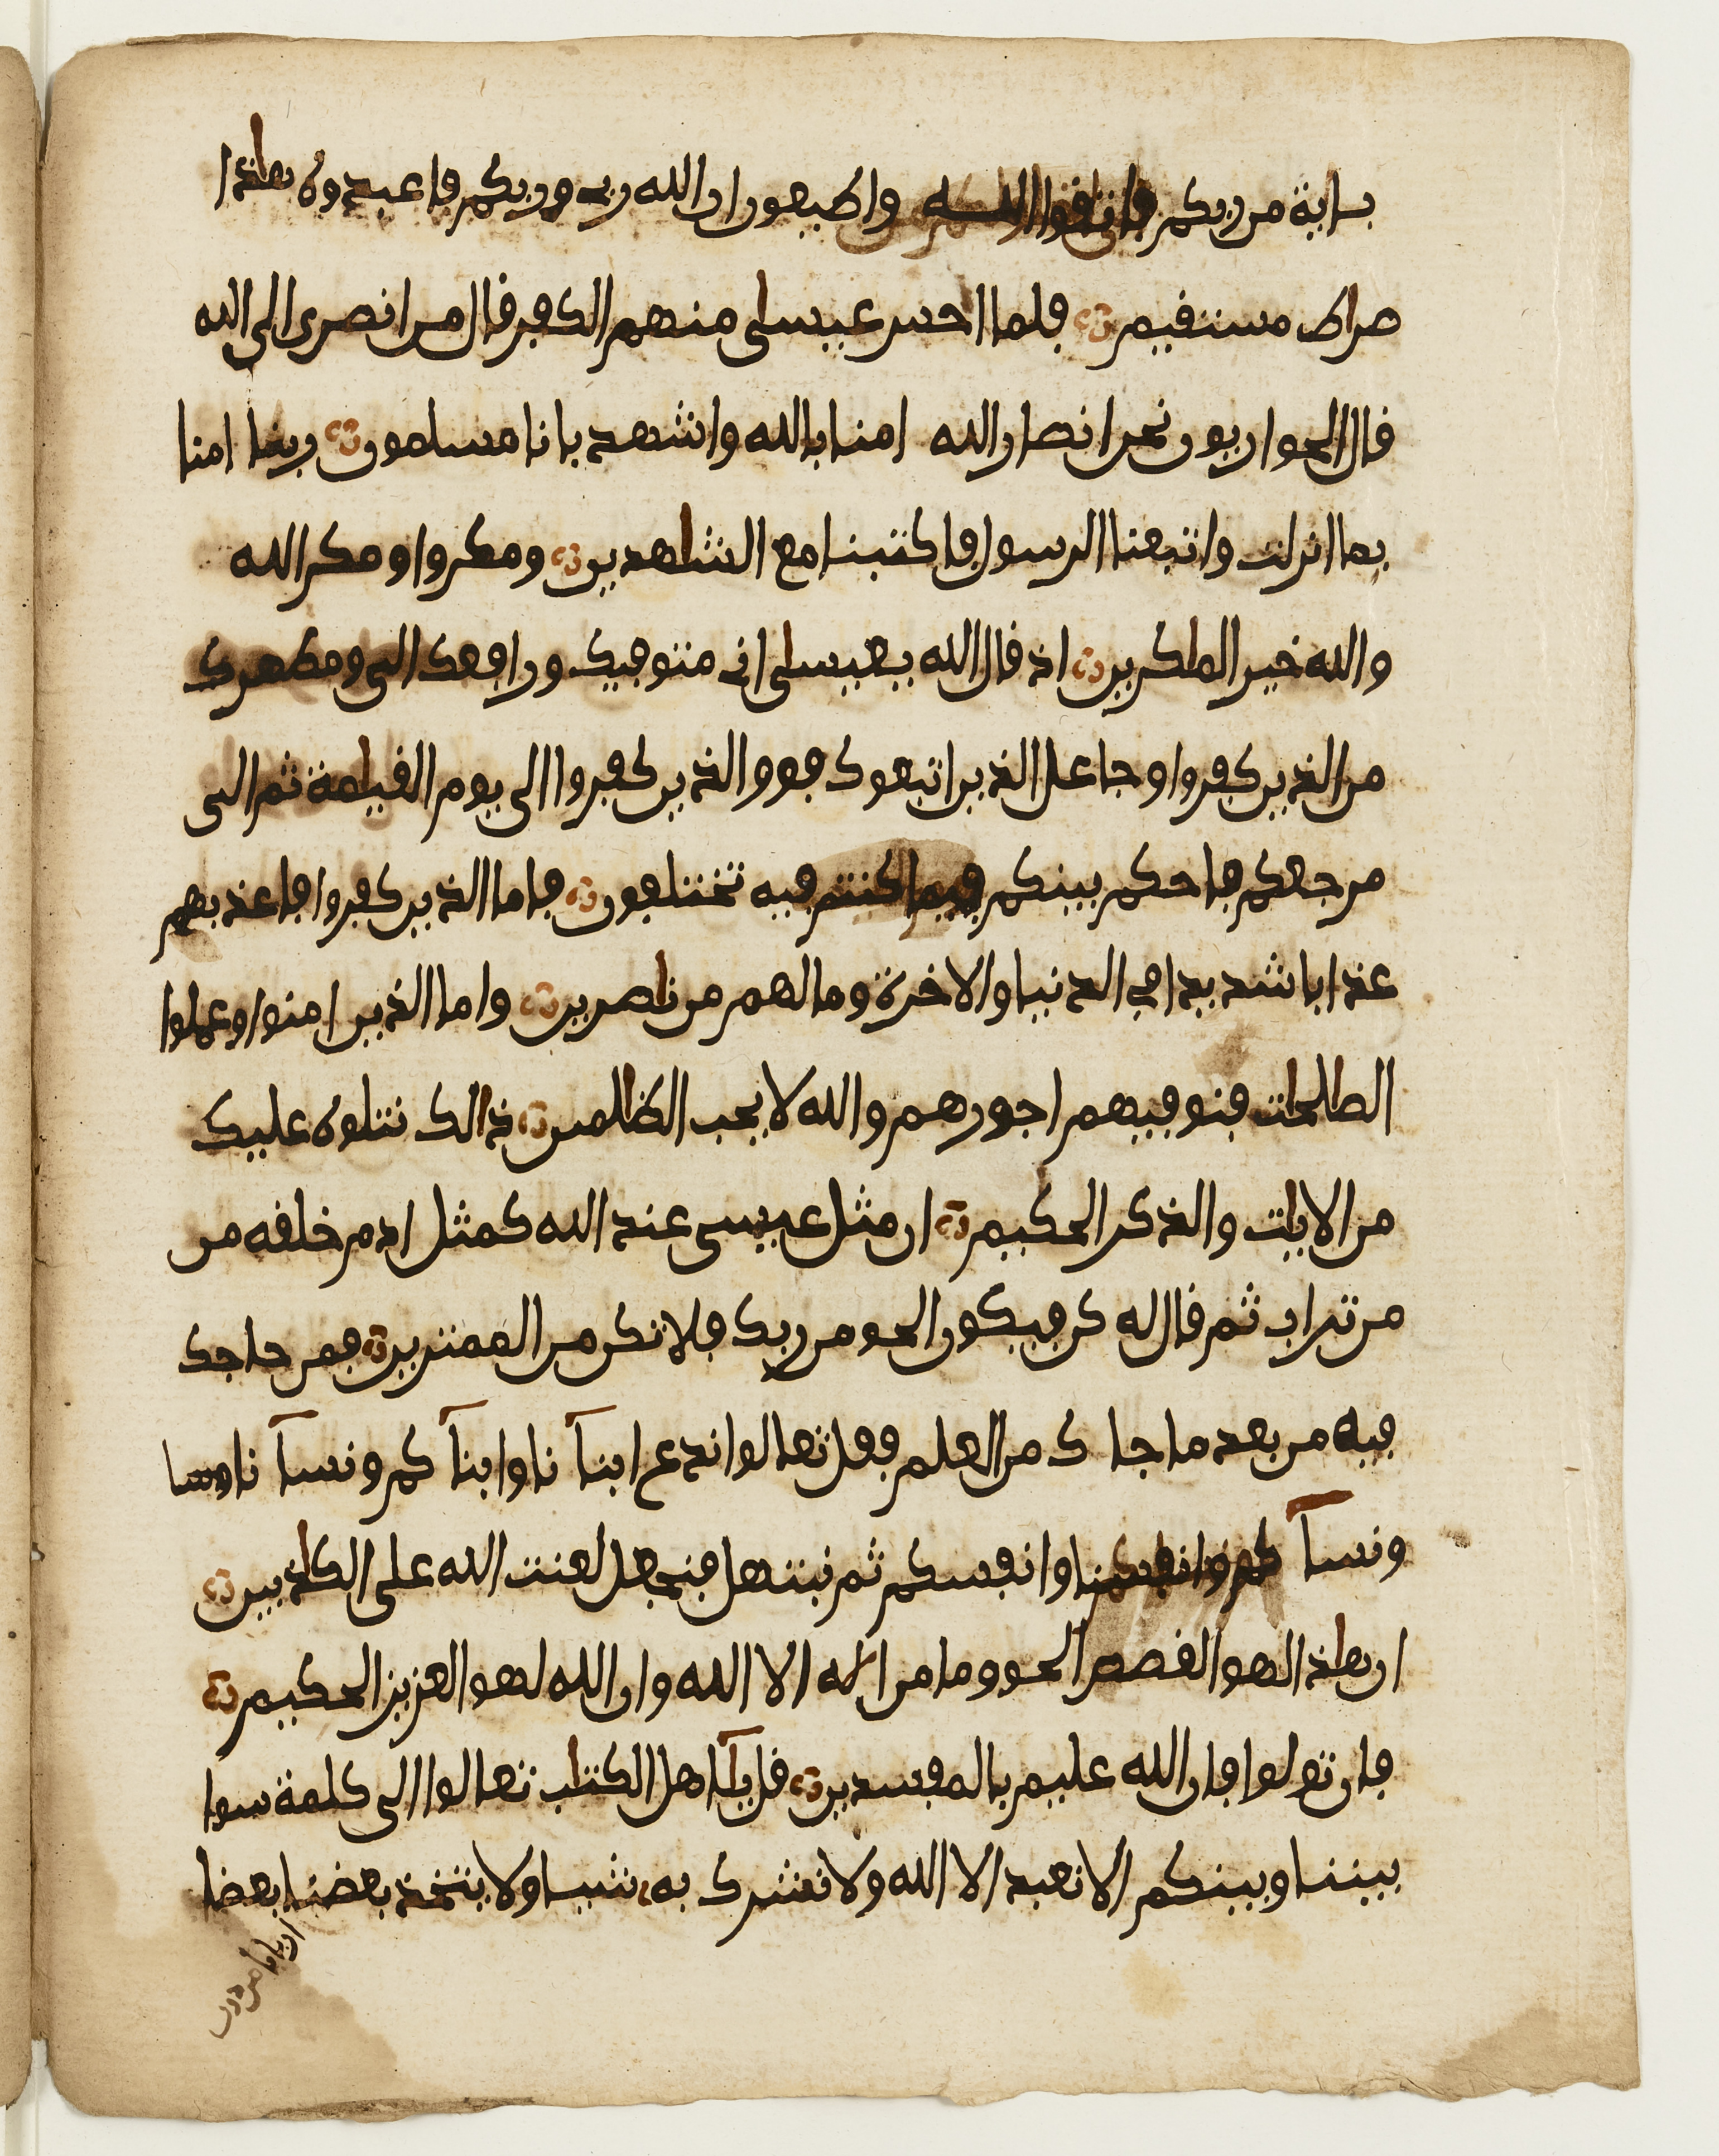 بـاية من ربكم فاتقوا الله واطيعون ان الله ربي وربكم فاعبدوه هـٰذا
صراط مستقيم فلما احس عيسىٰ منهم الكفر قال من انصارى الى الله
قال الحواريون نحن انصار الله امنا بالله واشهد بانا مسلمون ربنا امنا
بما انزلت واتبعنا الرسول فاكتبنا مع الشٰهدين ومكروا ومكر الله
والله خير المٰكرين اذ قال الله يعيسىٰ انى متوفيك ورافعك الى ومطهرك
من الذين كفروا وجاعل الذين اتبعوك فوق الذين كفروا الى يوم القيٰمة ثم الى
مرجعكم فاحكم بينكم فيما كنتم فيه تختلفون فاما الذين كفروا فاعذبهم
عذابا شديدا في الدنيا والاخرة وما لهم من نٰصرين واما الذين امنوا وعملوا
الصٰلحٰت فنوفيهم اجورهم والله لا يحب الظٰلمين ذٰالك نتلوه عليك
من الايٰت والذكر الحكيم ان مثل عيسى عند الله كمثل ادم خلقه من
من تراب ثم قال له كن فيكون الحق من ربك فلا تكن من الممترين فمن حاجك
فيه من بعد ما جا ك من العلم فقل تعالوا ندع ابنآ نا وابنآ كم ونسآ نا ونسا
ونسآ كم وانفسنا وانفسكم ثم نبتهل فنجعل لعنت الله على الكٰذبين
ان هٰذا لهو القصص الحق وما من الٰه الا الله وان الله لهو العزيز الحكيم
فان تولوا فان الله عليم بالمفسدين قل يٰآاهل الكتٰب تعالوا الى كلمة سوا
بيننا وبينكم الا نعبد الا الله ولا نشرك به شيا ولا يتخذ بعضنا بعضا
اربابا من دون